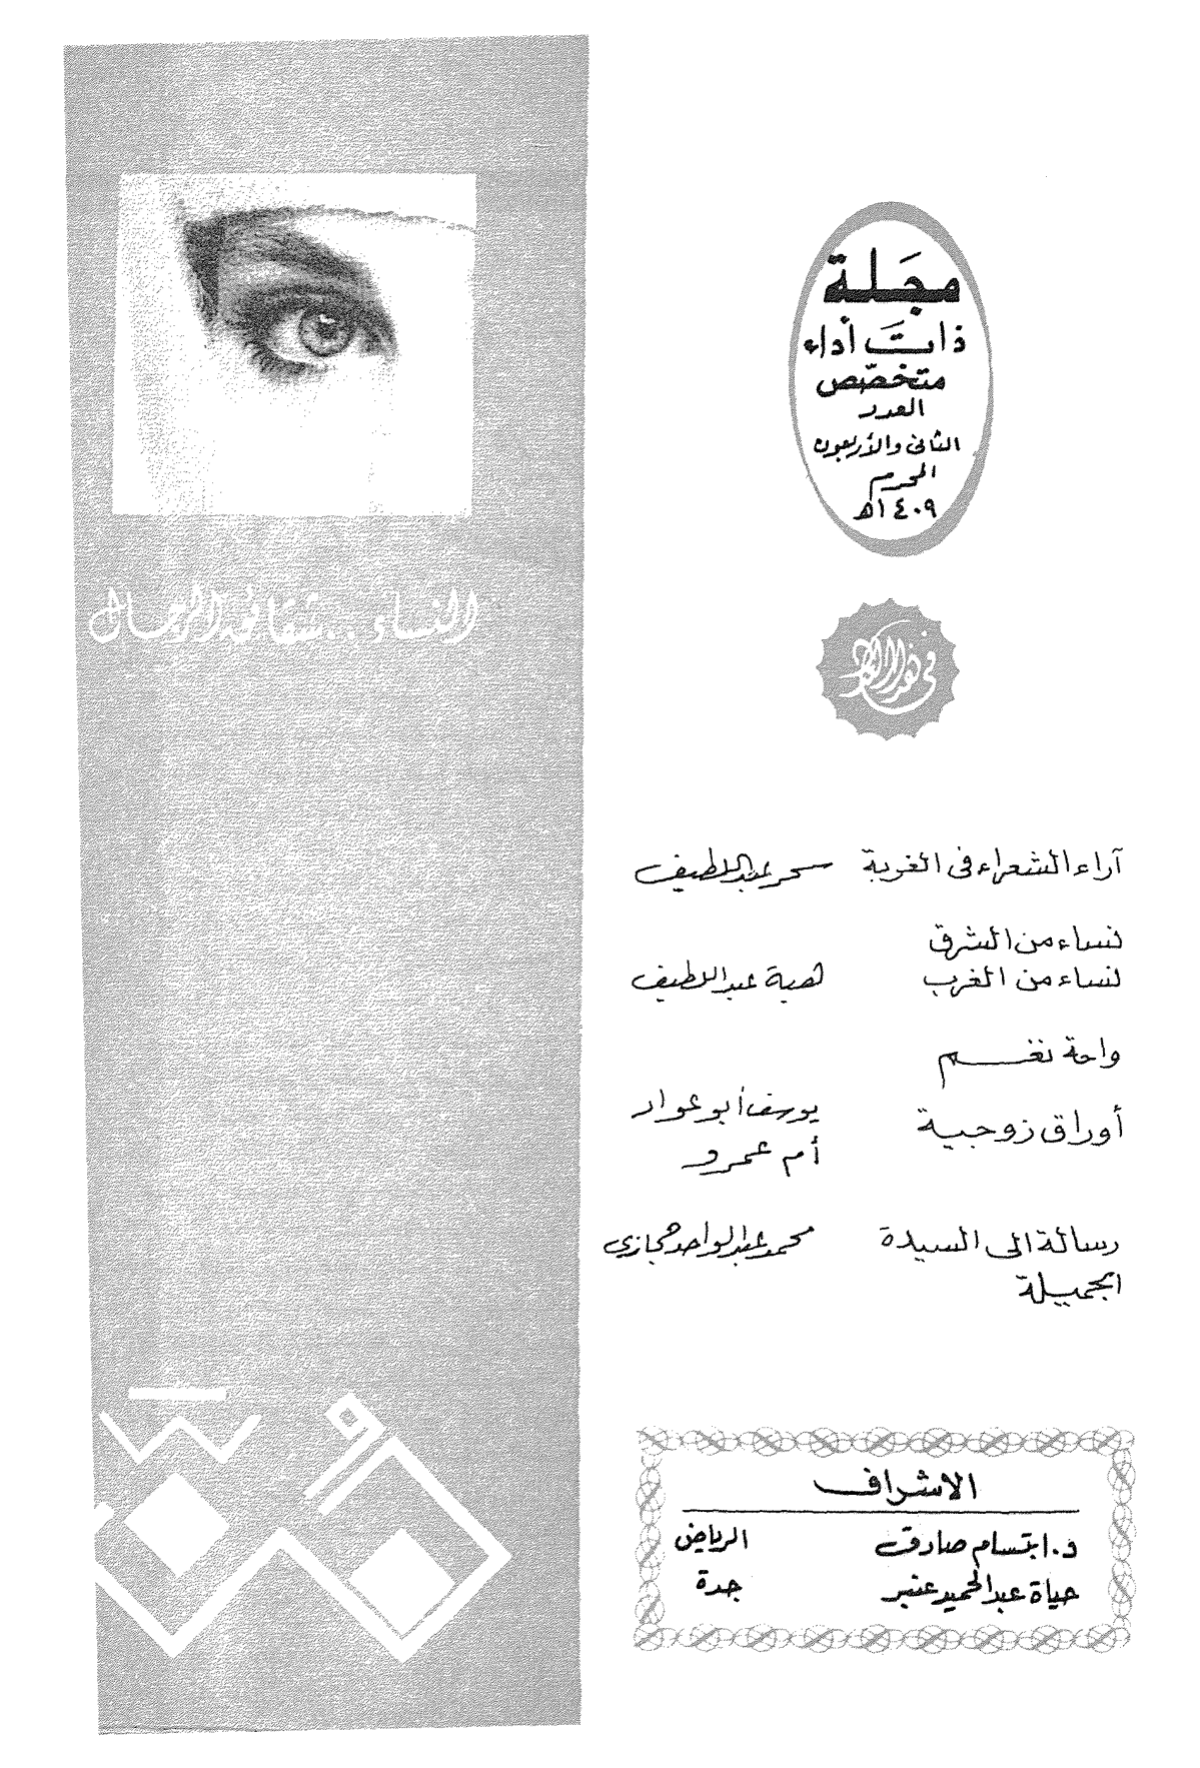 مجَلة
ذات أداء
متخصّص
العدد
الثانى والأربعون
المحرم
١٤٠٩هـ
فى هذا العدد
آراء الشعراء فى الغربة سحر عبداللطيف
نساء من الشرق
نساء من الغرب هبة عبداللطيف
واحة نغم
أوراق زوجية يوسف أبو عواد
أم عمرو
رسالة الى السيدة محمد عبدالواحد حجازى
الجميلة
الاشراف
د. ابتسام صادق الرياض
حياة عبدالحميد عنبر جدة
النساء .. شقائق الرجال